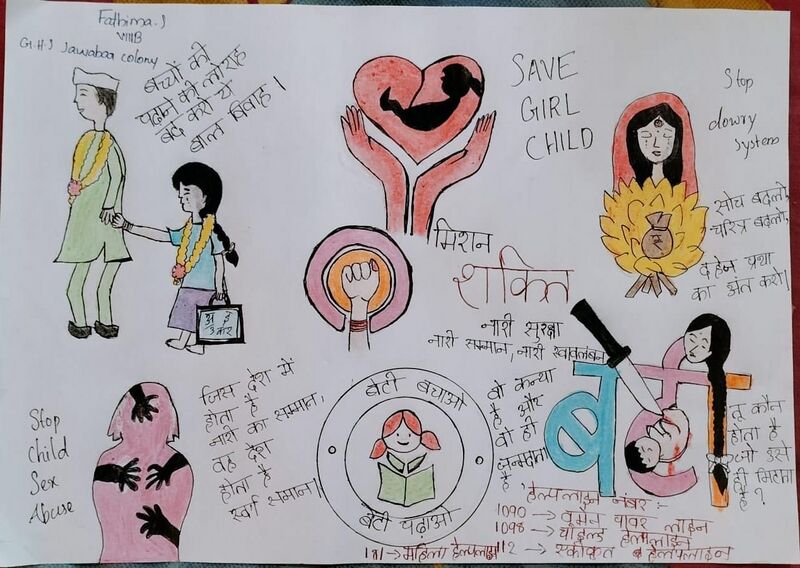 Fathima.J
VIIIB
G.H.S Jawabaa colony
बच्चों को
पढ़ाने की
बंद करो ये
बाल विवाह।
अ इ
उ
SAVE
GIRL
CHILD
Stop
dowry
System
सोच बदलो,
चरित्र बदलो,
दहेज प्रथा
का अंत करो।
₹
मिशन
शक्ति
नारी सुरक्षा
नारी सम्मान, नारी स्वावलंबन
Stop
Child
Sex
Abuse
जिस देश में
होता है
नारी का सम्मान,
वह देश
होता है
स्वर्ग समान।
बेटी बचाओ
बेटी पढ़ाओ
वो कन्या
है और
वो ही
जन्मदाता
है,
बेटी
तू कौन
होता है
जो इसे
ही मिटाता
है?
हेल्पलाइन नंबर :-
1090 → वूमैन पावर लाइन
1098 → चाइल्ड हेल्पलाइन
181 → महिला हेल्पलाइन
112 → हेल्पलाइन